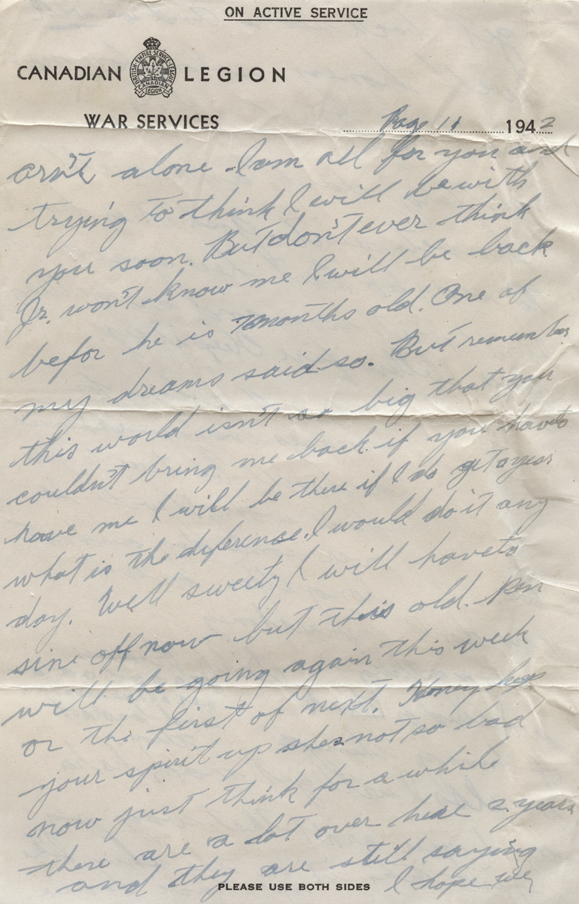 ON ACTIVE SERVICE
CANADIAN LEGION
WAR SERVICES
Page 11 1942
arn't alone. I am all for you and
trying to think I will be with
you soon. But don't ever think
Jr. won't know me I will be back
befor he is months old. One of
my dreams said so. But remember
this world isn't so big that you
couldn't bring me back if you have to
have me I will be there if I do get a year
what is the deferense. I would do it any
day. Well sweety I will have to
sine off now but this old Pen
will be going again this week
or the first of next. Honey keep
your spirit up shes not so bad
now just think for a while
there are a lot over hear 2 years
and they are still saying
PLEASE USE BOTH SIDES
I hope we